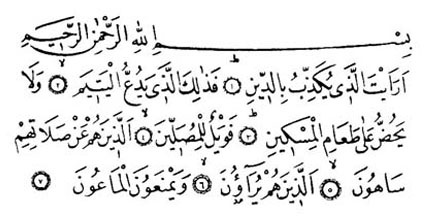 بِسْمِ اللهِ الرَّحْمٰنِ الرَّحِيمِ
اَرَاَيْتَ الَّذِي يُكَذِّبُ بِالدِّينِ ﴿١﴾ فَذٰلِكَ الَّذِي يَدُعُّ الْيَتِيمَ ﴿٢﴾ وَلَا
يَحُضُّ عَلٰى طَعَامِ الْمِسْكِينِ ﴿٣﴾ فَوَيْلٌ لِلْمُصَلِّينَ ﴿٤﴾ اَلَّذِينَ هُمْ عَنْ صَلَاتِهِمْ
سَاهُونَ ﴿٥﴾ اَلَّذِينَ هُمْ يُرَآؤُنَ ﴿٦﴾ وَيَمْنَعُونَ الْمَاعُونَ ﴿٧﴾